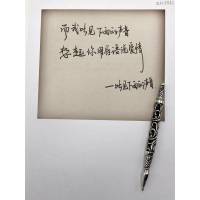 而我听见下雨的声音
想起你用唇语说爱情
—听见下雨的声音